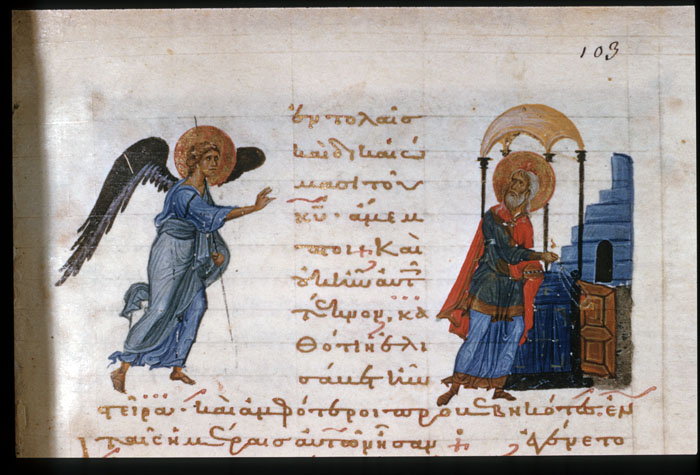 103
ἐντολαῖσ
καὶ δικαιώ
μασι τοῦ
κ̅υ̅· ἄμεμ
πτοι· καὶ
οὐκ ἦν αὐτ
τέκνον, κα
θότι ἡ ἐλι
σάβετ ἦν
στεῖρα· καὶ ἀμφότεροι προβεβηκότεσ ἐν
ταῖσ ἡμέραισ αὐτῶν ἦσαν + ἐγένετο